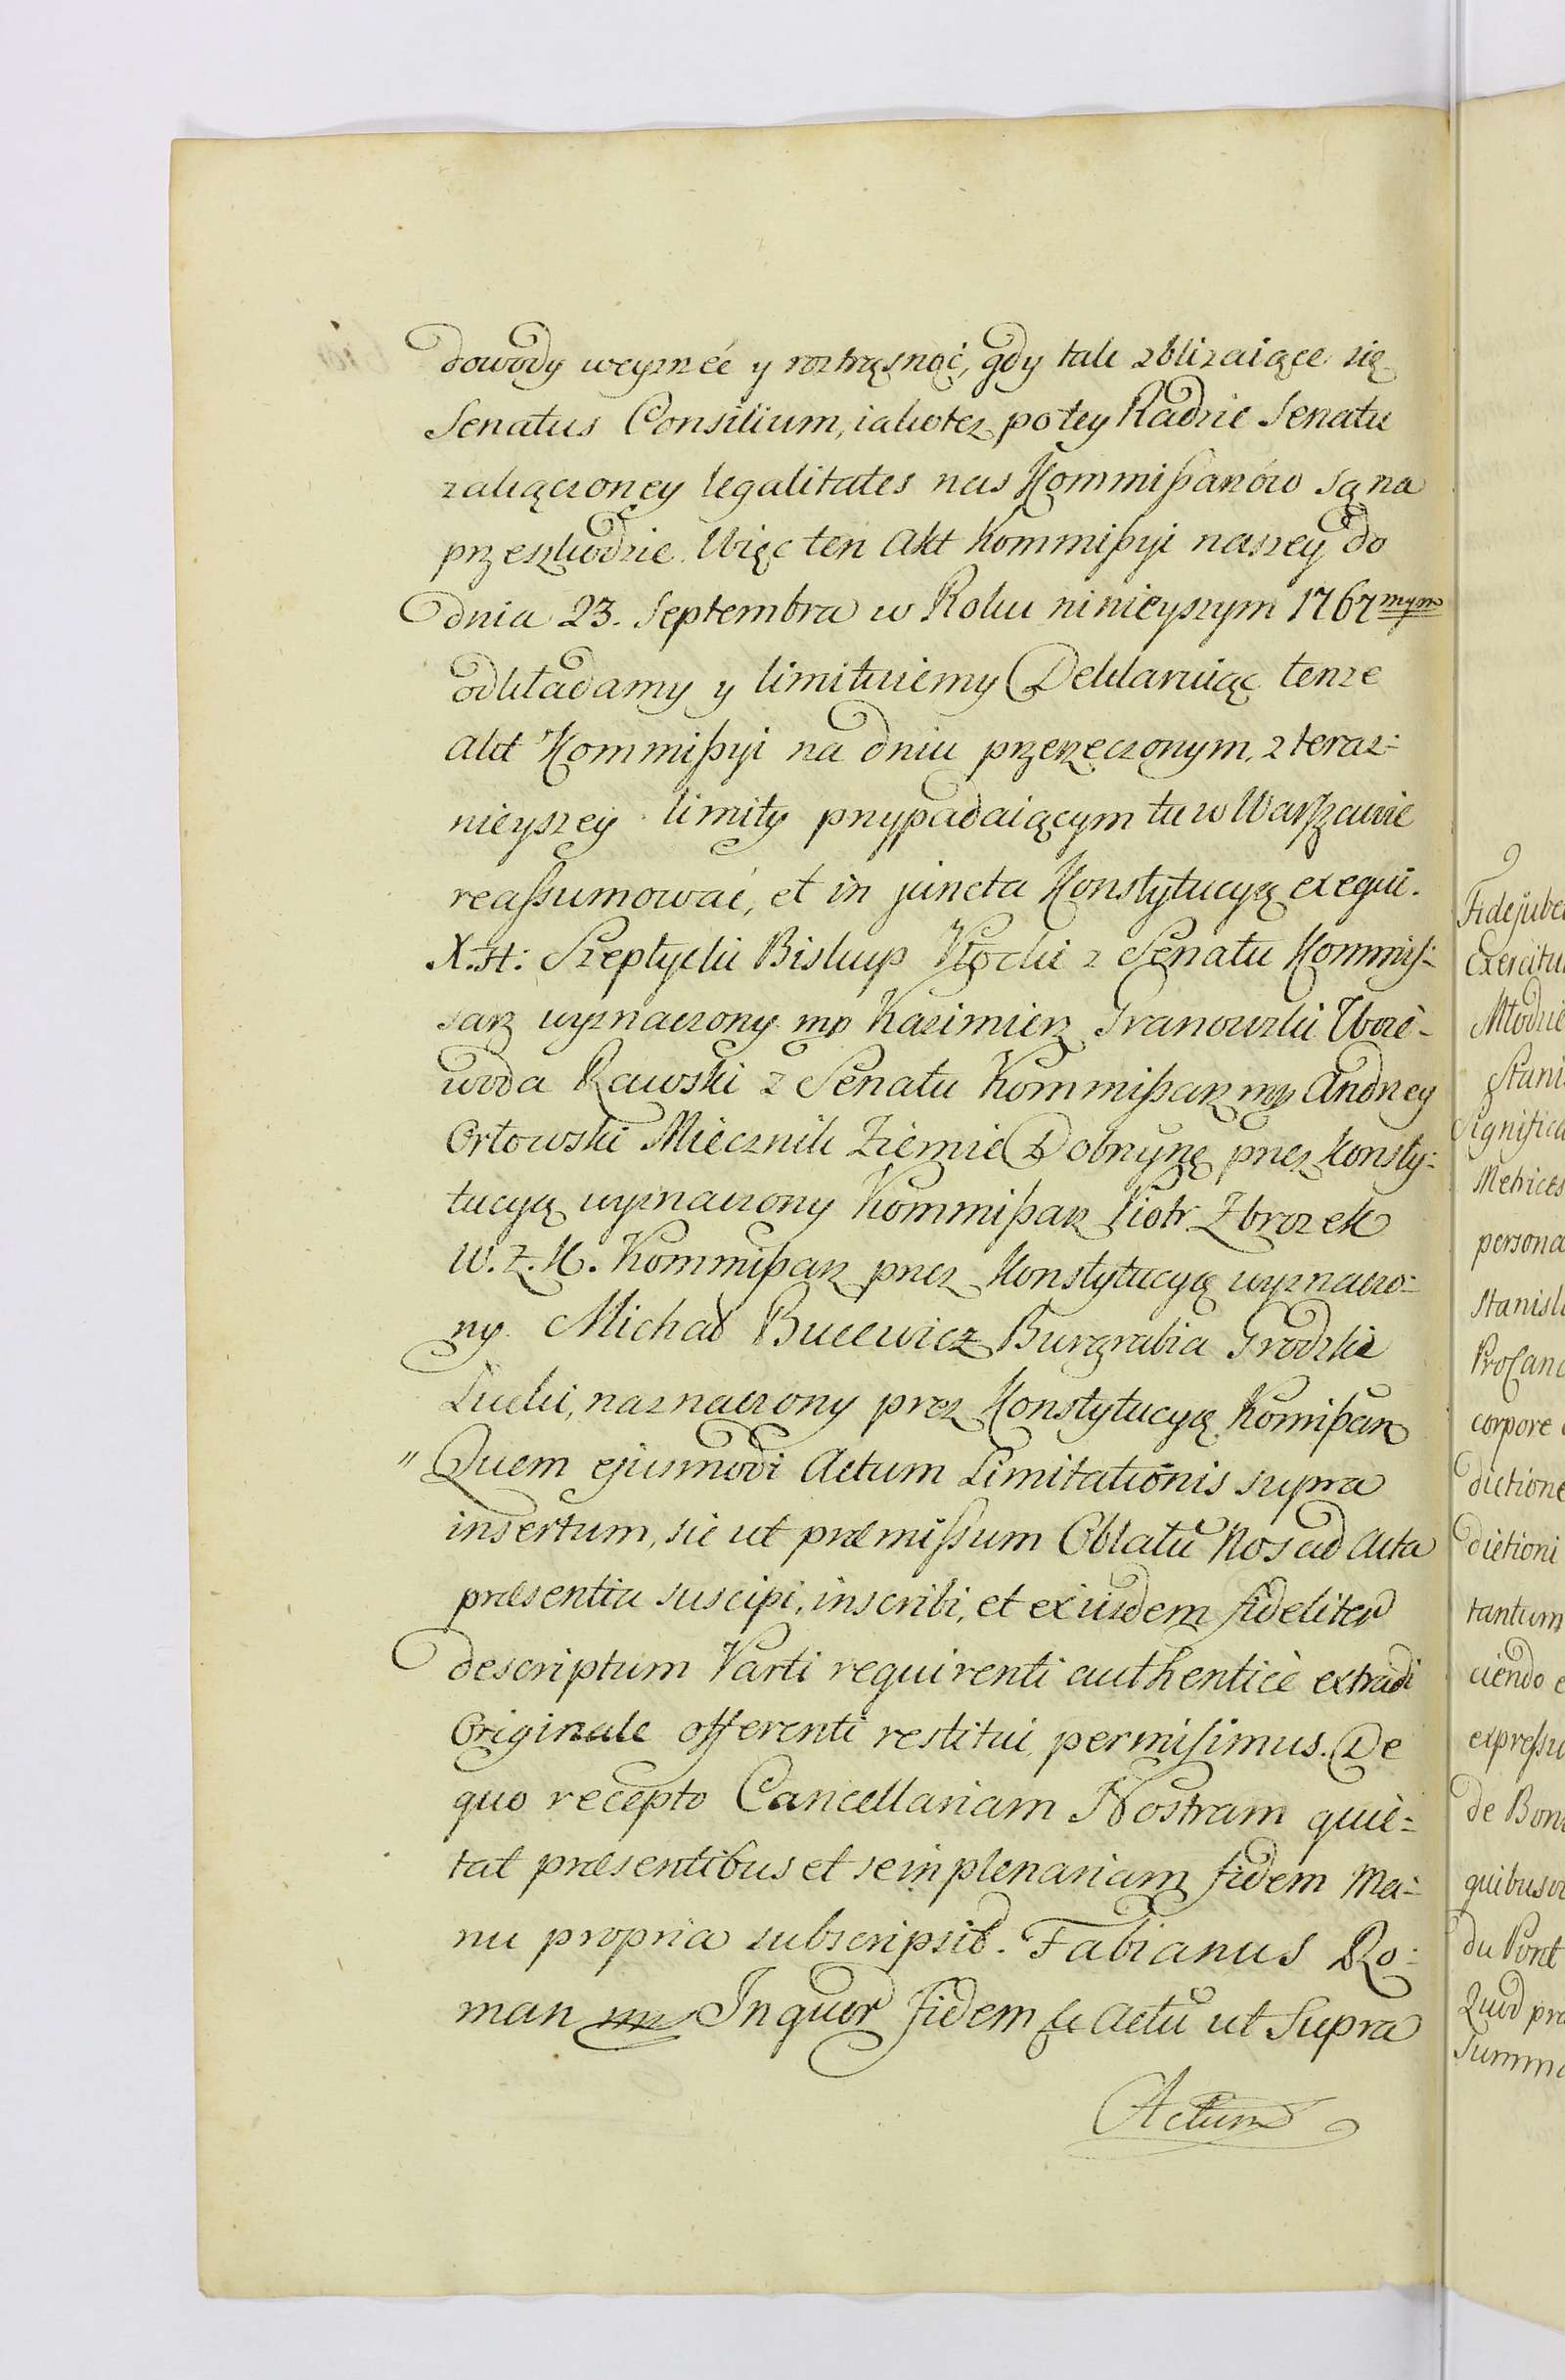 dowody weyrzéć y roztrząsnąć, gdy tak zbliżaiące się
Senatus Consilium, iakoteż po tey Radzie Senatu
zakączoney legalitates nas Kommißarzów są na
przeszkodzie. Więc ten Akt Kommißyi naszey do
dnia 23. Septembra w Roku ninieyszym 1767mym
odkładamy y limituiemy Deklaruiąc tenże
Akt Kommißyi na dniu przerzeczonym, z teraz:
nieyszey limity przypadaiącym tu w Warszawie
reaßumować, et in juncta Konstytucyą exequi.
X. H: Szeptycki Biskup Płocki z Senatu Kommis:
sarz wyznaczony mp Kazimierz Granowski Woie-
woda Rawski z Senatu Kommißarz mp Andrzey
Orłowski Miecznik Ziemie Dobrzyńę przez Konsty:
tucyą wyznaczony Kommißarz Piotr Zbrożek
W. Z. K. Kommißarz przez Konstytucyą wyznaczo:
ny. Michał Bucewicz Burgrabia Grodzki
Łucki, naznaczony przez Konstytucyą Komißarz
" Quem ejusmodi Actum Limitationis supra
insertum, sic ut præmißum Oblatū Nos ad Acta
præsentia suscipi, inscribi, et exiisdem fideliter
descriptum Parti requirenti authenticè extradi
Originale offerenti restitui, permisimus. De
quo recepto Cancellariam Nostram quie:
tat præsentibus et se in plenariam fidem Ma:
nu propria subscripsit. Fabianus Ro:
man mp In quor fidem &c Actū ut Supra
Actum
Fidejube
Exercitu
Młodzie
Stani
Significa
Metrices
persona
Stanisla
ProCanc
corpore
dictione
dictioni
tantum
ciendo e
expreßu
de Bon
quibusv
du Pont
Quod pra
Summa